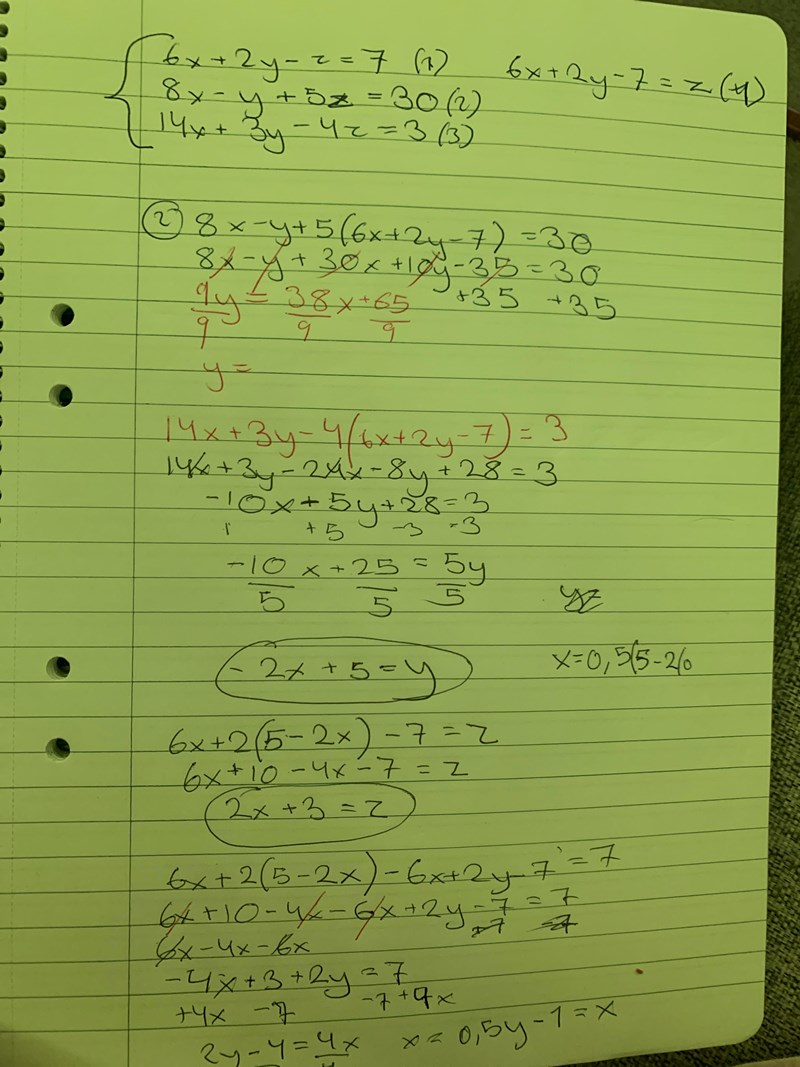 6x+2y-z=7 (1) 6x+2y-7=z (4)
8x-y+5z=30 (2)
14x+3y-4z=3 (3)
(2) 8x-y+5(6x+2y-7)=30
8x-y+30x+10y-35=30
+35 +35
9y/9=38/9x+65/9
y=
14x+3y-4(6x+2y-7)=3
14x+3y-24x-8y+28=3
-10x+5y+28=3
+5 -3 -3
-10/5x+25/5=5y/5
-2x+5=y x=0,5(5-2(
6x+2(5-2x)-7=z
6x+10-4x-7=z
2x+3=z
6x+2(5-2x)-6x+2y-7=7
6x+10-4x-6x+2y-7=7
-7 -7
6x-4x-6x
-4x+3+2y=7
+4x -7 -7+4x
2y-4=4x x=0,5y-1=x